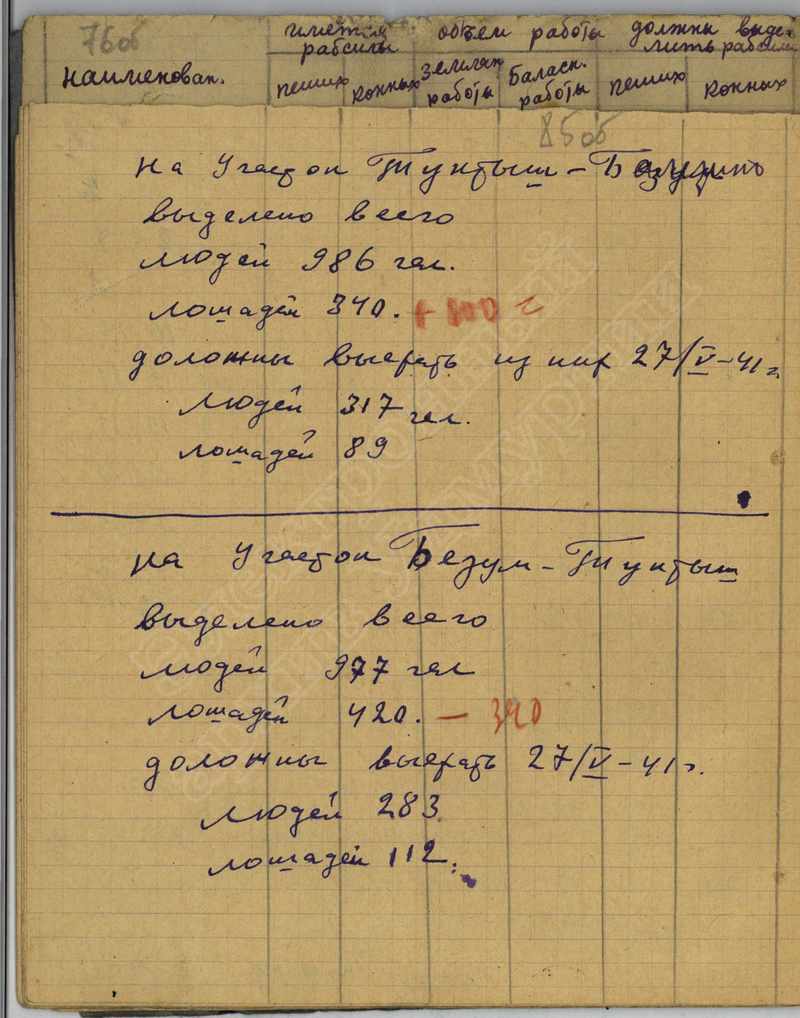 76об
имеется
рабсилы
объем работы
должны выде-
лить рабсилы
наименован.
пеших
конных
землян
работы
баласн.
работы
пеших
конных
85об
на Участок Туктыш-
выделено всего
людей 986 чел.
лошадей 340. + 100 г
доложны выехать из них 27/V-41г.
людей 317 чел.
лошадей 89
на Участок Безум-Туктыш
выделено всего
людей 977 чел
лошадей 420. — 340
доложны выехать 27/V-41г.
людей 283
лошадей 112.